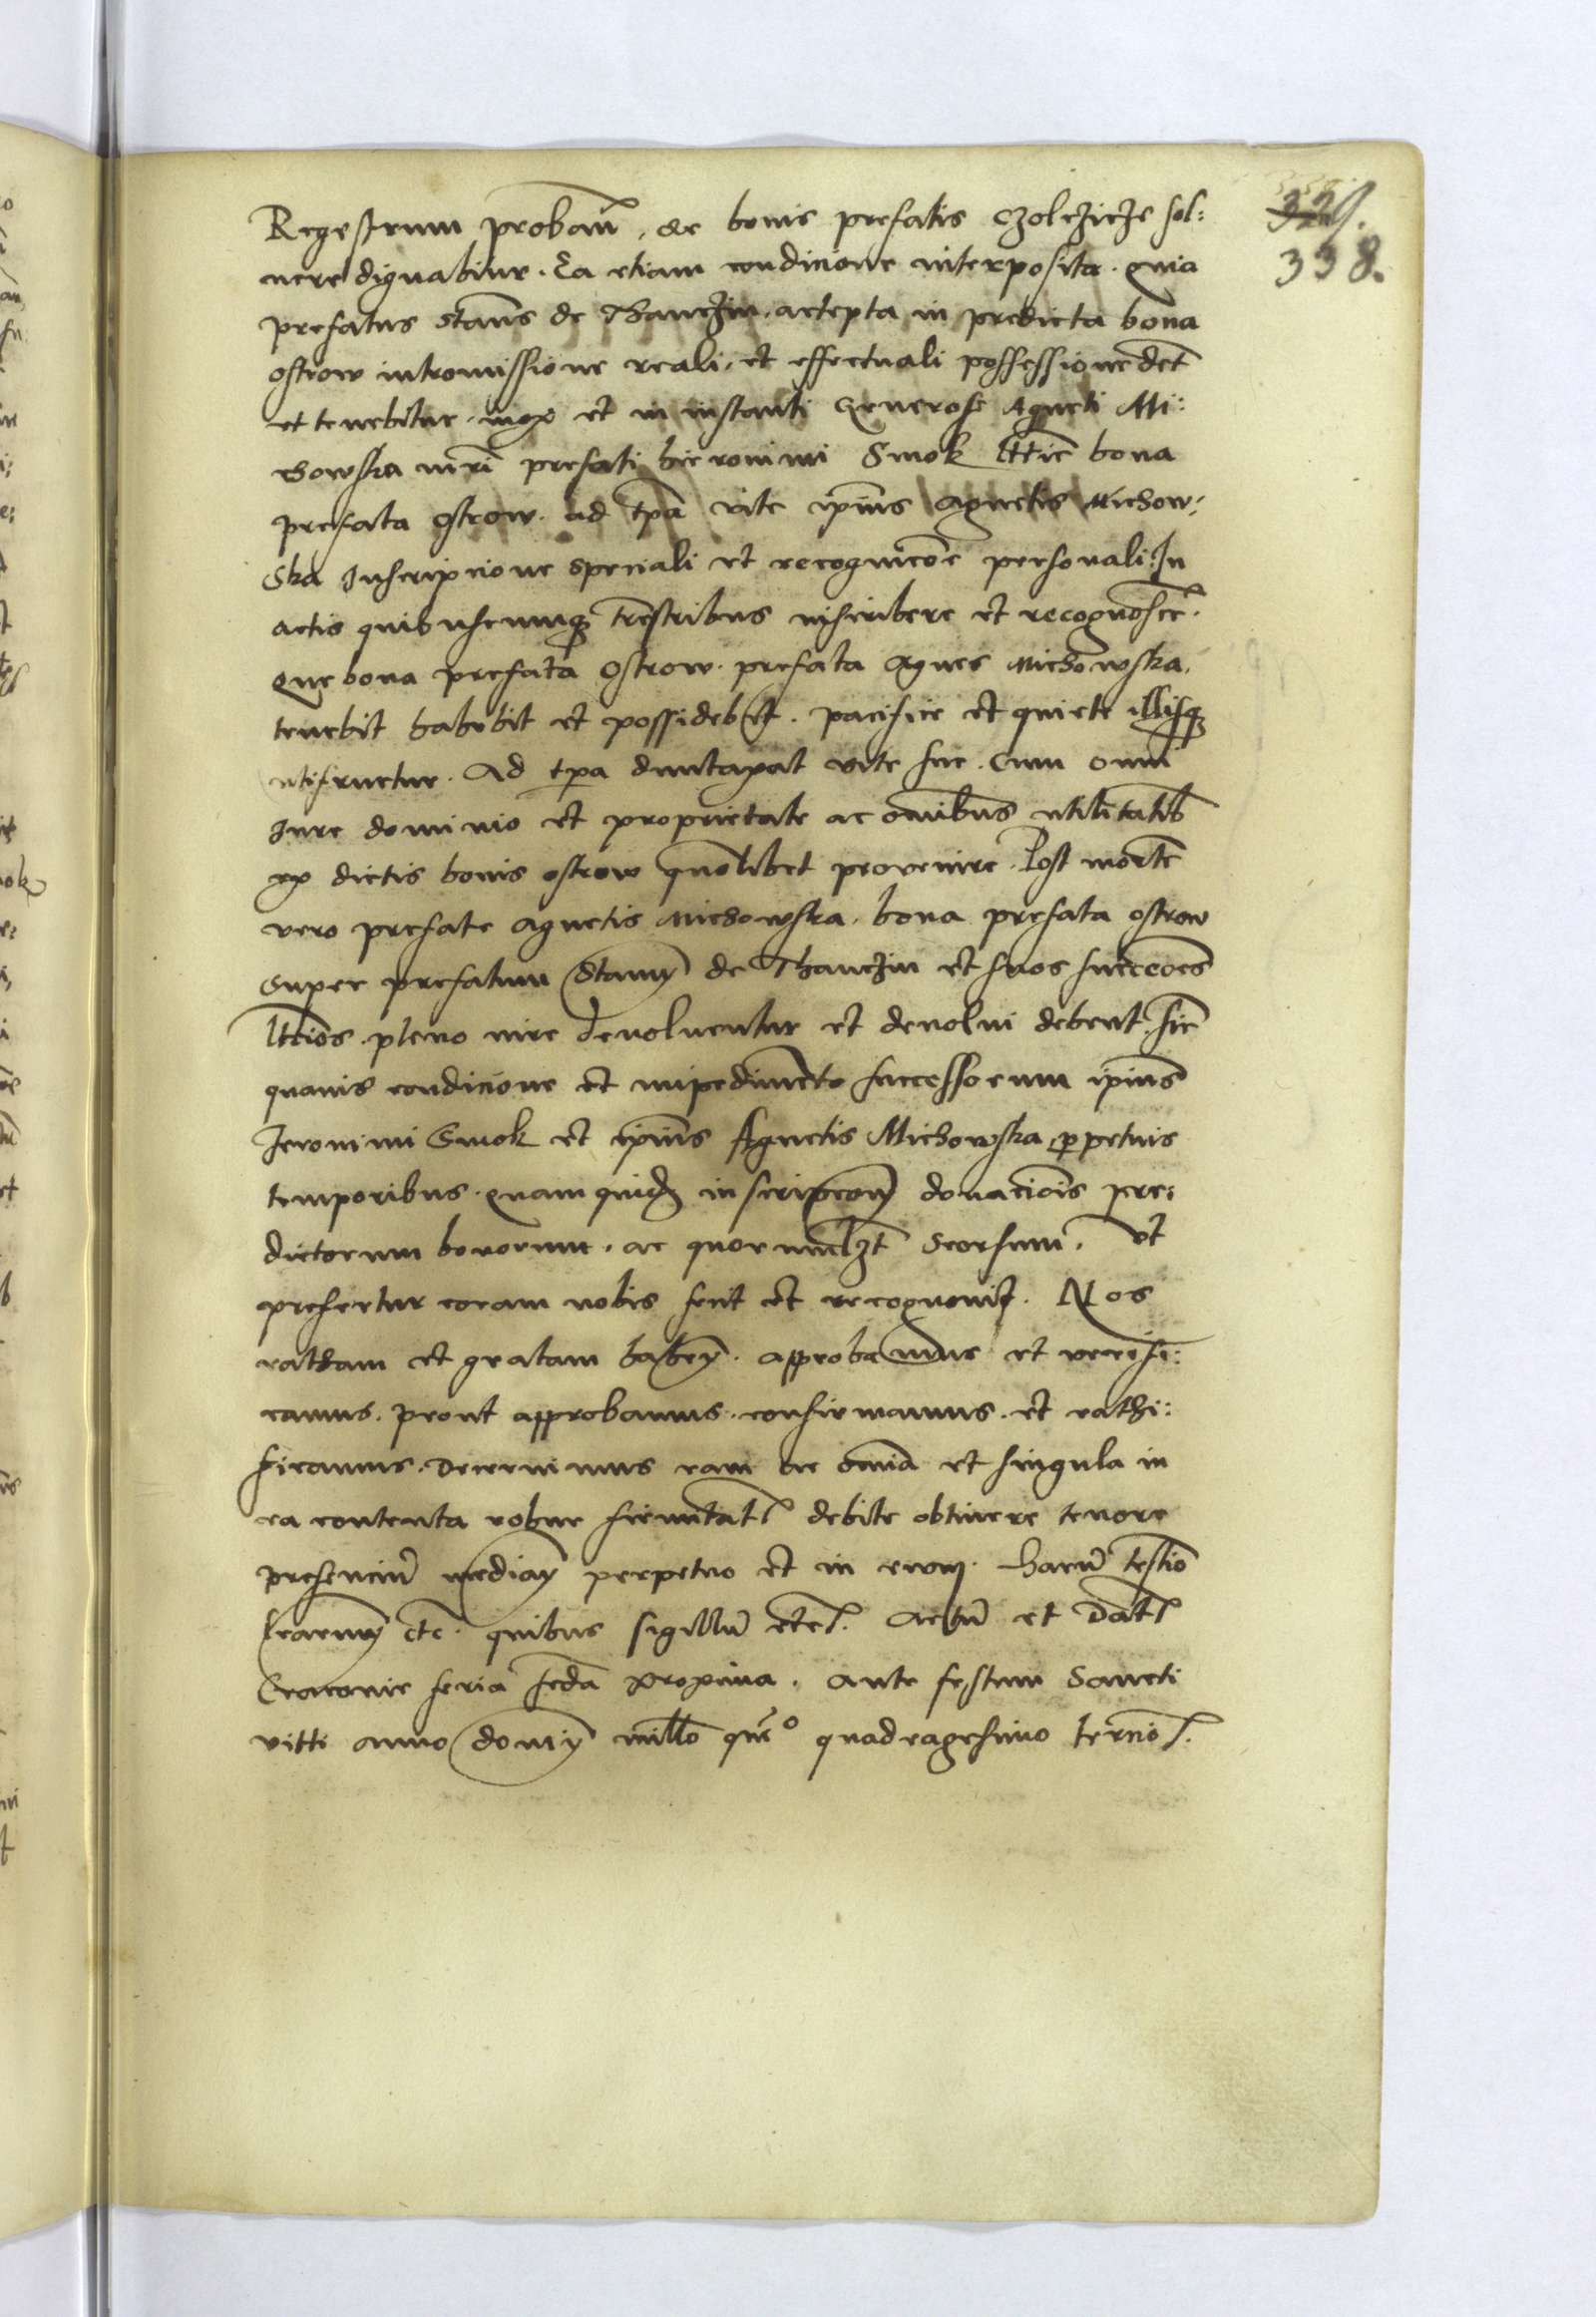 329.
338.
Regestrum proban̄, de bonis prefatis Czolczicze sol:
uere dignabitur. Ea etiam condicione interposita. quia
prefatus Stan̄s de Thanczin. accepta in predicta bona
ostrow intromissione reali, et effectuali possessione det̄
et tenebitur. mox et in instanti Generose Agneti Mi:
chowska ux̄ri prefati hieronimi Smok lttīe bona
prefata ostrow. ad tp̄a vite ip̄ius Agnetis Michow:
ska Inscripcione speciali et recognicōe personali. In
actis quibuscunq̨ tr̄estribus inscribere et recognoscē.
que bona prefata ostrow. prefata Agnes Michowska.
tenebit habebit et possidebit. pacifice et quiete illisq̨
utifruetur. Ad tp̄a duntaxat vite sue. Cum omni
Iure dominio et proprietate ac om̄ibus utilitatib̄
ex dictis bonis ostrow quolibet provenire. Post mortē
vero prefate Agnetis Michowska. bona prefata ostrow
Super prefatum Stanij de Thanczin et suos succcoēs
lttīos. pleno iure devoluentur et devolui debent. sīe
quavis condicione et impedimento successorum ip̄ius
Ieronimi Smok et ip̄ius Agnetis Michowska p̱petuis
temporibus. quam quid̨ inscripcionȷ̄ donaciōis pre:
dictorum bonorum. ac quorumlz̄t seorsum. ut
prefertur coram nobis fecit et recognovit. Nos
ratham et gratam haben̄. approbamus et verifi:
camus. prout approbamus. confirmamus. et rathi:
ficamus. Decernimus eam ac om̄ia et singula in
ea contenta robur firmitat̄ debite obtinere tenore
presenciū median̄ perpetuo et in evum. Harū testīo
lr̄arum etc. quibus sigillū etc. Actū et Dat̄
Cracovie feria scd̄a proxima. ante festum Sancti
vitti anno domj̄ mill̄o qnḡo quadragesimo terciō.